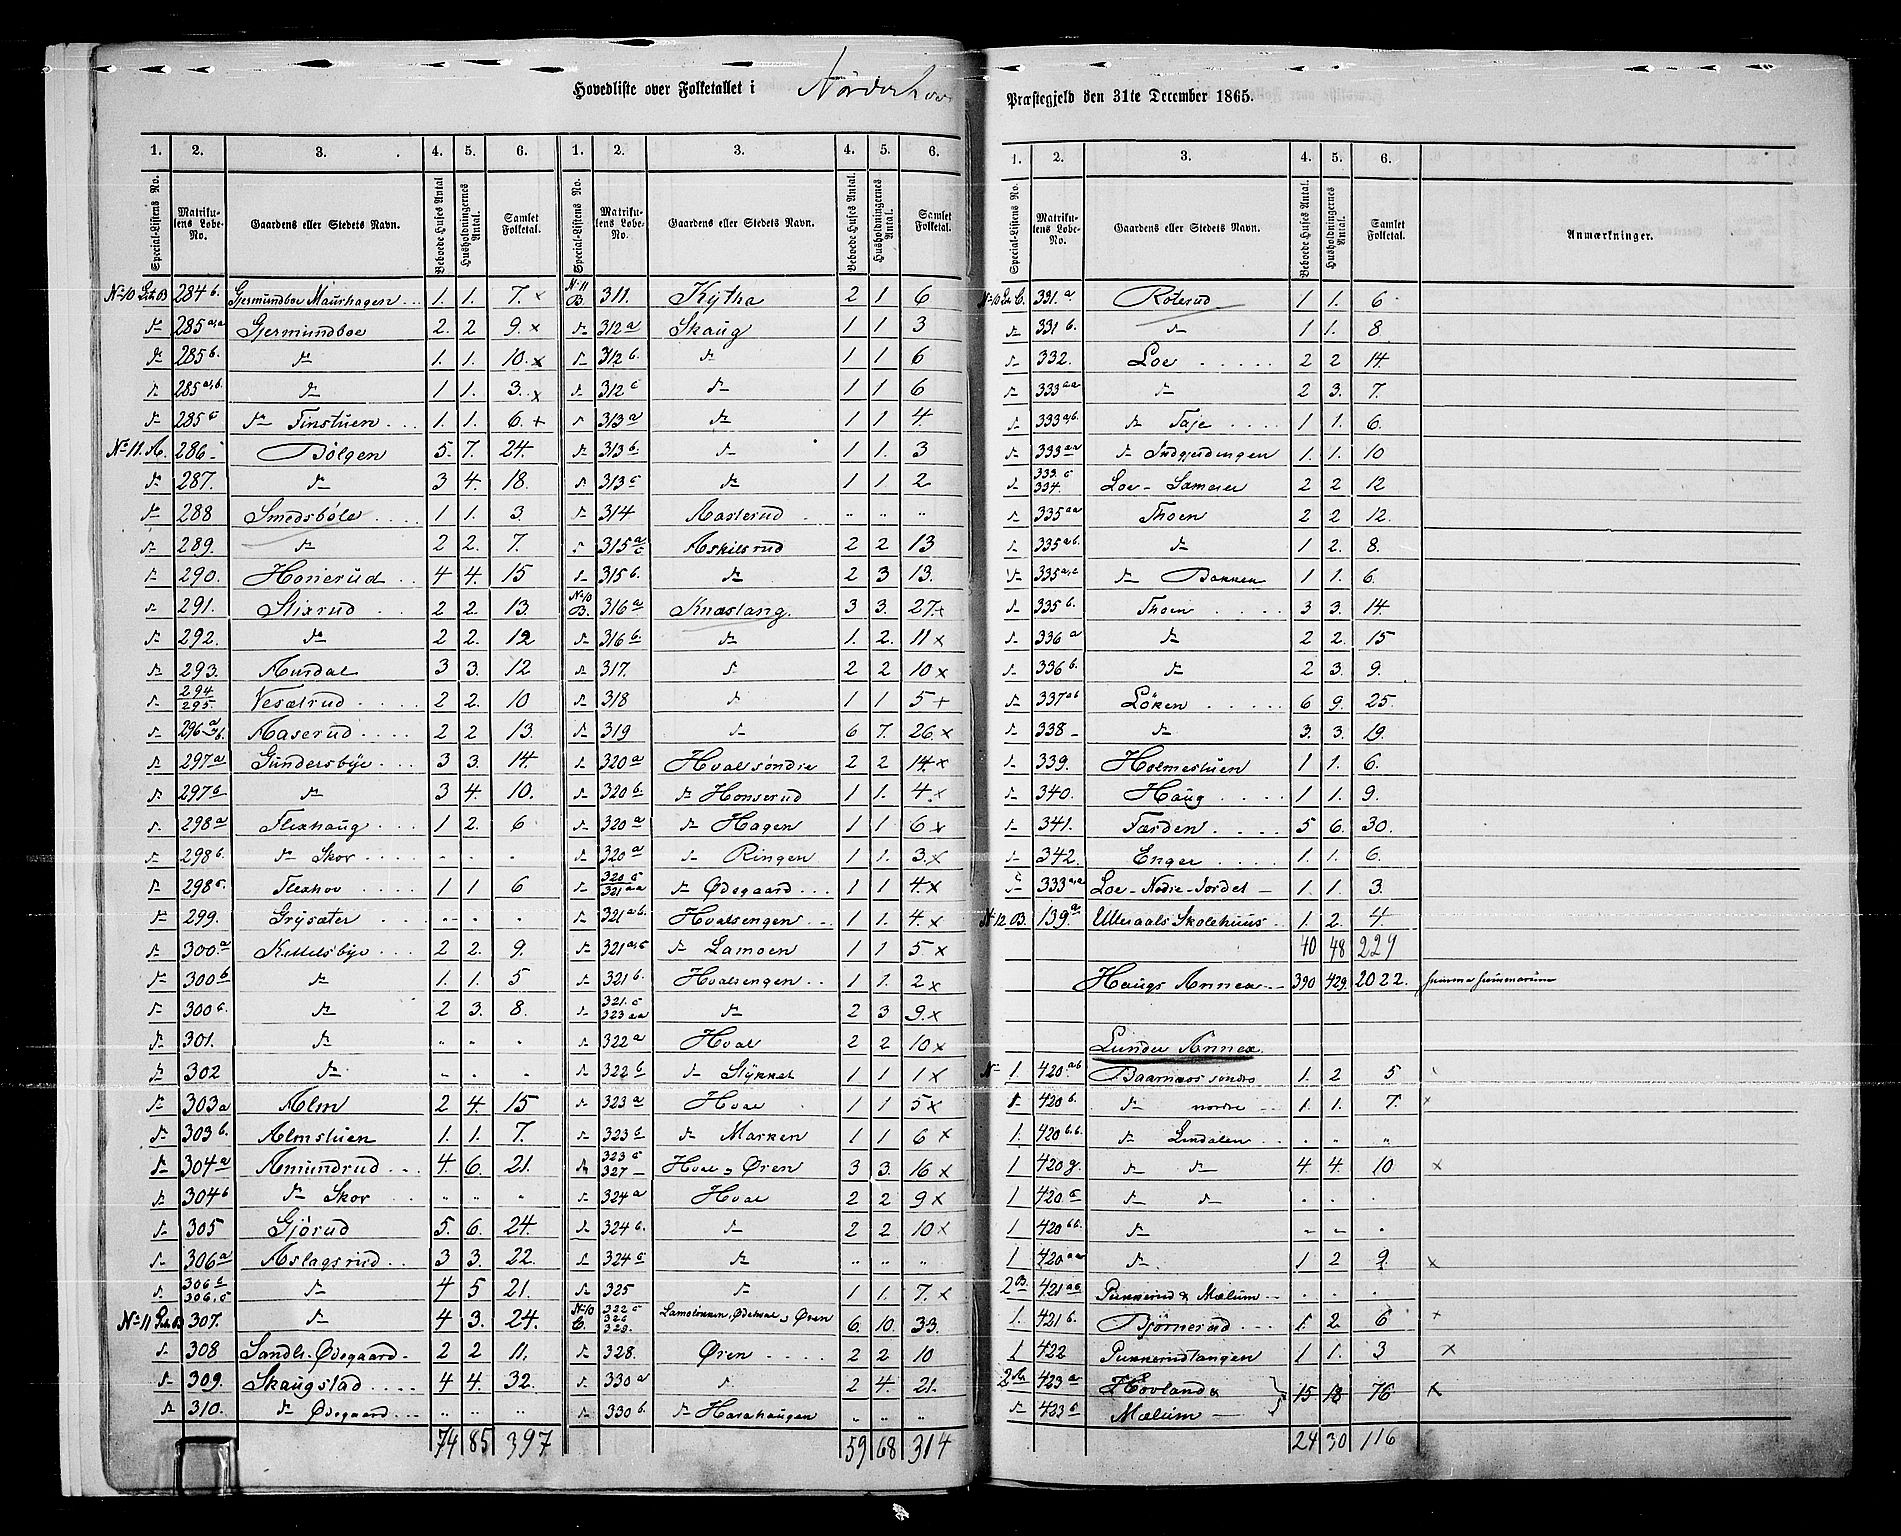 Hovedliste over Folketallet i Norderhov Præstegjeld den 31te December 1865.
1. 2. 3. 4. 5. 6.
Special-Listens No. Matrikulens Løbe-No. Gaardens eller Stedets Navn. Beboede Huses Antal Husholdningernes Antal. Samlet Folketal.
No 10 Litr. B 284 b. Gjermundboe Maurhagen 1. 1. 7. x
do 285 a,a Gjermundboe 2. 2 9. x
do 285 b. do 1. 1. 10. x
do 285 a,b. do 1 1. 3. x
do 285 c do Tinstuen 1. 1. 6. +
No 11. A. 286 Bølgen 5. 7. 24.
do 287. do 3 4. 18.
do 288 Smedsbøle 1 1. 3.
do 289. do 2 2. 7.
do 290. Honerud 4 4. 15
do 291. Stixrud 2 2. 13.
do 292. do 2 2. 12
do 293. Aurdal 3 3. 12
do 294 295. Veselrud 2 2. 10
do 296 a b. Aaserud 2 2 13.
do 297 a Gundersbye 3 3. 14.
do 297 b do 3 4. 10.
do 298 a Flexhaug 1 2. 6
do 298 b. do Skov . . .
do 298 c. Flexhov 1 1 6
do 299. Grysæter . . .
do 300 a Kittelsbye 2 2. 9.
do 300 b do 1. 1. 5
do 300 b. do 2 3. 8.
do 301. do " " "
do 302 do " . .
do 303 a Alm 2 4. 15
do 303 b. Almstuen 1. 1. 7.
do 304 a Amundrud 4. 6. 21.
do 304 b do Skov " " "
do 305 Gjørud 5. 6. 24.
do 306 a Aslagsrud 3 3. 22.
do 306 b 306. c do 4 5 21.
No 11 Litr. B 307. do 4 3. 24.
do 308 Sandh. Ødegaard 2 2 11.
do 309. Skaugstad 4 4. 32.
do 310. do Ødegaard " " "
74 85 397
1. 2. 3. 4. 5. 6.
Special-Listens No. Matrikulens Løbe-No. Gaardens eller Stedets Navn. Beboede Huses Antal. Husholdningernes Antal. Samlet Folketal.
No 11 B. 311. Kytha 2 1 6
do 312 a Skaug 1 1 3
do 312 b. do 1 1 6
do 312 c do 1 1 6
do 313 a do 1 1 4
do 313 b do 1 1. 3
do 313 c do 1 1 2
do 314 Aaslerud " " "
do 315 a c Askilsrud 2 2 13
do 315 b. do 2 3 13.
No 10 B. 316 a Knæstang. 3 3. 27. x
do 316 b. do 1. 2. 11 x
do 317. do 2 2 10 x
do 318 do 1 1 5 +
do 319 do 6 7. 26 x
do 320 a Hval søndre 2 2 14 x
do 320 b. do Honserud 1 1. 4. x
do 320 a do Hagen 1 1 6 x
do 320 a do Ringen 1 1. 3. x
do 320 c 321 aa do Ødegaard 1 1 4. x
do 321 a,b. Hvalsengen 1 1. 4. x
do 321 a,c do Lamoen 1 1 5 x
do 321 b. Hvalsengen 1 1. 2 x
do 321. c 323 aa do 2 3 9. x
do 322 a Hval 2 2 10 x
do 322 b do Stykket 1 1 1 x
do 323 a Hval 1 1 5 x
do 323 b do Marken 1 1 6 x
do 323 c 327 Hval og Øren 3 3. 16 x
do 324 a Hval 2 2 9 x
do 324 b. do 2 2 10 x
do 324 c do " " "
do 325 do 1 1. 7. x
No 10 C. 322 c 326 329. og Øren 6. 10. 33.
do 328. Øren 2 2 10
do 330 a do 2 4. 21.
do 330 b. do Harahaugen " " "
59 68 314
1. 2. 3. 4. 5. 6.
Special-Listens No. Matrikulens Løbe-No. Gaardens eller Stedets Navn. Beboede Huses Antal. Husholdningernes Antal. Samlet Folketal. Anmærkninger.
No 10 Litr C. 331. a Røterud 1 1. 6
do 331 b. do 1 1. 8
do 332. Loe 2 2 14.
do 333 aa do 2 3. 7.
do 333 a,b. do Taje 1 1. 6.
do 333 aa do Indgjerdingen 1. 1. 10
do 333. c 334. Loe-Sameier 2 2 12
do 335 aa Thoen 2 2 12.
do 335 a,b. do 1 2. 8.
do 335 a,c do Bakken 1 1. 6.
do 335 b. Thoen 3 3. 14
do 336 a do 2 2. 15
do 336 b. do 2 3. 9.
do 337 ab Løken 6 9. 25.
do 338 do 3. 3. 19.
do 339. Holmestuen 1 1. 6.
do 340. Haug 1 1. 9.
do 341. Færden 5 6. 30.
do 342. Enger 1. 1. 6.
do 333 a,a Loe-Nedre-Jordet 1 1. 3.
No 12 B. 139. a Ulleraals Skolehuus 1 2. 4.
40 48 229
Haugs Annex 390 429. 2022. summa summarum
Lunder Annex.
No 1 420 ab Baarnæs søndre 1. 2 5
do 420 b. do nordre 1. 1. 7. x
1. 420 b.b. do Lindalen . . "
1 420 g. do do 4 4. 10 x
1 420 c do do . . .
1 420 bb. do " " .
1 420 aa do 1 2 9. x
2 B. 421 aa Pukkerud & Mælum . . .
1. 421 b. Bjørnerud 1. 2 6 x
1 422 Pukkerudtangen 1 1. 3 x
2 A 423 a Hovland & 15 18 76 x
do 423 c Mælum
24 30 116